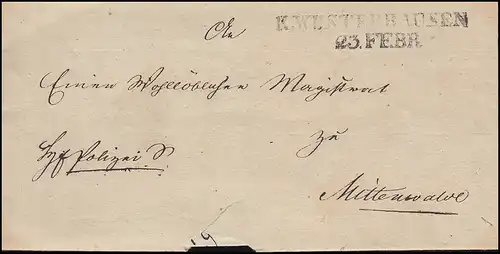 K.WUSTERHAUSEN
23.FEBR.
An
Einen Wohllöblichen Magistrat
Polizei S.
zu
Mittenwalde